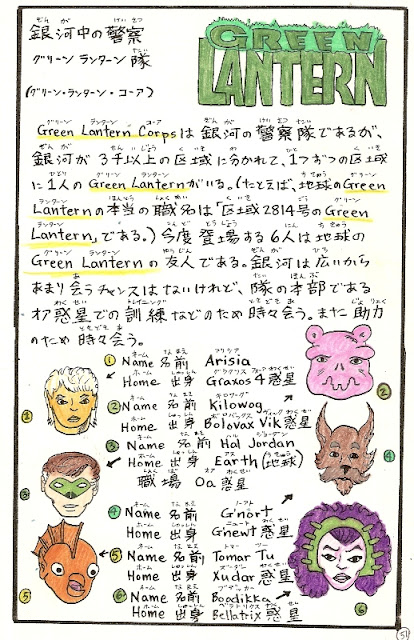 銀河中の警察
グリーン ランターン 隊
(グリーン・ランターン・コーア)
GREEN
LANTERN
Green Lantern Corpsは銀河の警察隊であるが、
銀河が3千以上の区域に分かれて、1つずつの区域
に1人のGreen Lanternがいる。(たとえば、地球のGreen
Lanternの本当の職名は「区域2814号のGreen
Lantern」である。)今度登場する6人は地球の
Green Lanternの友人である。銀河は広いから
あまり会うチャンスはないけれど、隊の本部である
オア惑星での訓練などのため時々会う。また助力
のため時々会う。
① Name 名前 Arisia
Home 出身 Graxos 4惑星
② Name 名前 Kilowog
Home 出身 Bolovax Vik惑星
③ Name 名前 Hal Jordan
Home 出身 Earth (地球)
職場 Oa 惑星
④ Name 名前 G'nort
Home 出身 G'newt 惑星
⑤ Name 名前 Tomar Tu
Home 出身 Xudar 惑星
⑥ Name 名前 Boodikka
Home 出身 Bellatrix 惑星
1
2
3
4
5
6